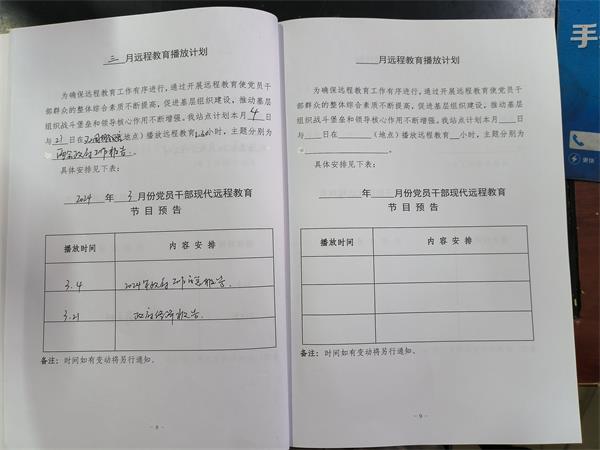 三 月远程教育播放计划
为确保远程教育工作有序进行,通过开展远程教育使党员干
部群众的整体综合素质不断提高,促进基层组织建设,推动基层
组织战斗堡垒和领导核心作用不断增强。我站点计划本月 4 日
与 21 日在 (地点)播放远程教育 小时,主题分别为
工作报告。
具体安排见下表:
2024 年 3 月份党员干部现代远程教育
节 目 预 告
播放时间 内 容 安 排
3.4 2024年政府工作 报告.
3.21 政府 报告.
备注:时间如有变动将另行通知。
- 8 -
月远程教育播放计划
为确保远程教育工作有序进行,通过开展远程教育使党员干
部群众的整体综合素质不断提高,促进基层组织建设,推动基层
组织战斗堡垒和领导核心作用不断增强。我站点计划本月____日
与____日在____(地点)播放远程教育__小时,主题分别为
____。
具体安排见下表:
____年____月份党员干部现代远程教育
节 目 预 告
播放时间 内 容 安 排
备注:时间如有变动将另行通知。
- 9 -
手